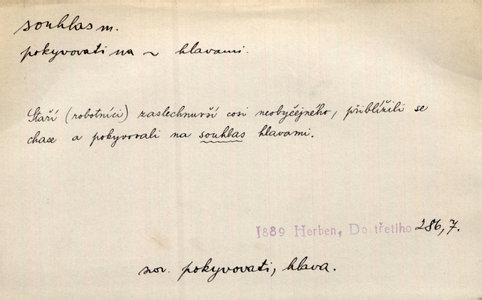 souhlas m.
pokyvovati na ~ hlavami.
Staří (robotníci) zaslechnuvší cosi neobyčejného, přiblížili se
chase a pokyvovali na souhlas hlavami.
1889 Herben, Do třetího 286,7.
srv. pokyvovati, hlava.